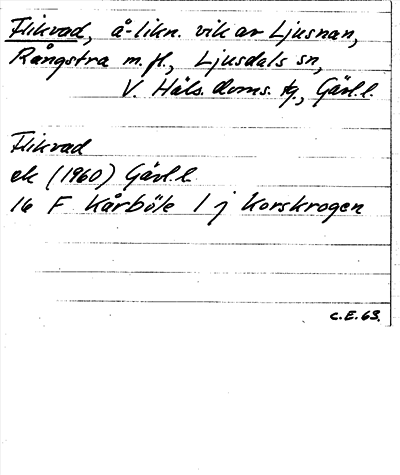 Flikvad, å-likn. vik av Ljusnan,
Rångstra m.fl., Ljusdals sn,
V. Häls. doms. tg, Gävl. l.
Flikvad
ek (1960) Gävl. l.
16 F Kårböle 1 j Korskrogen
C.E.63.